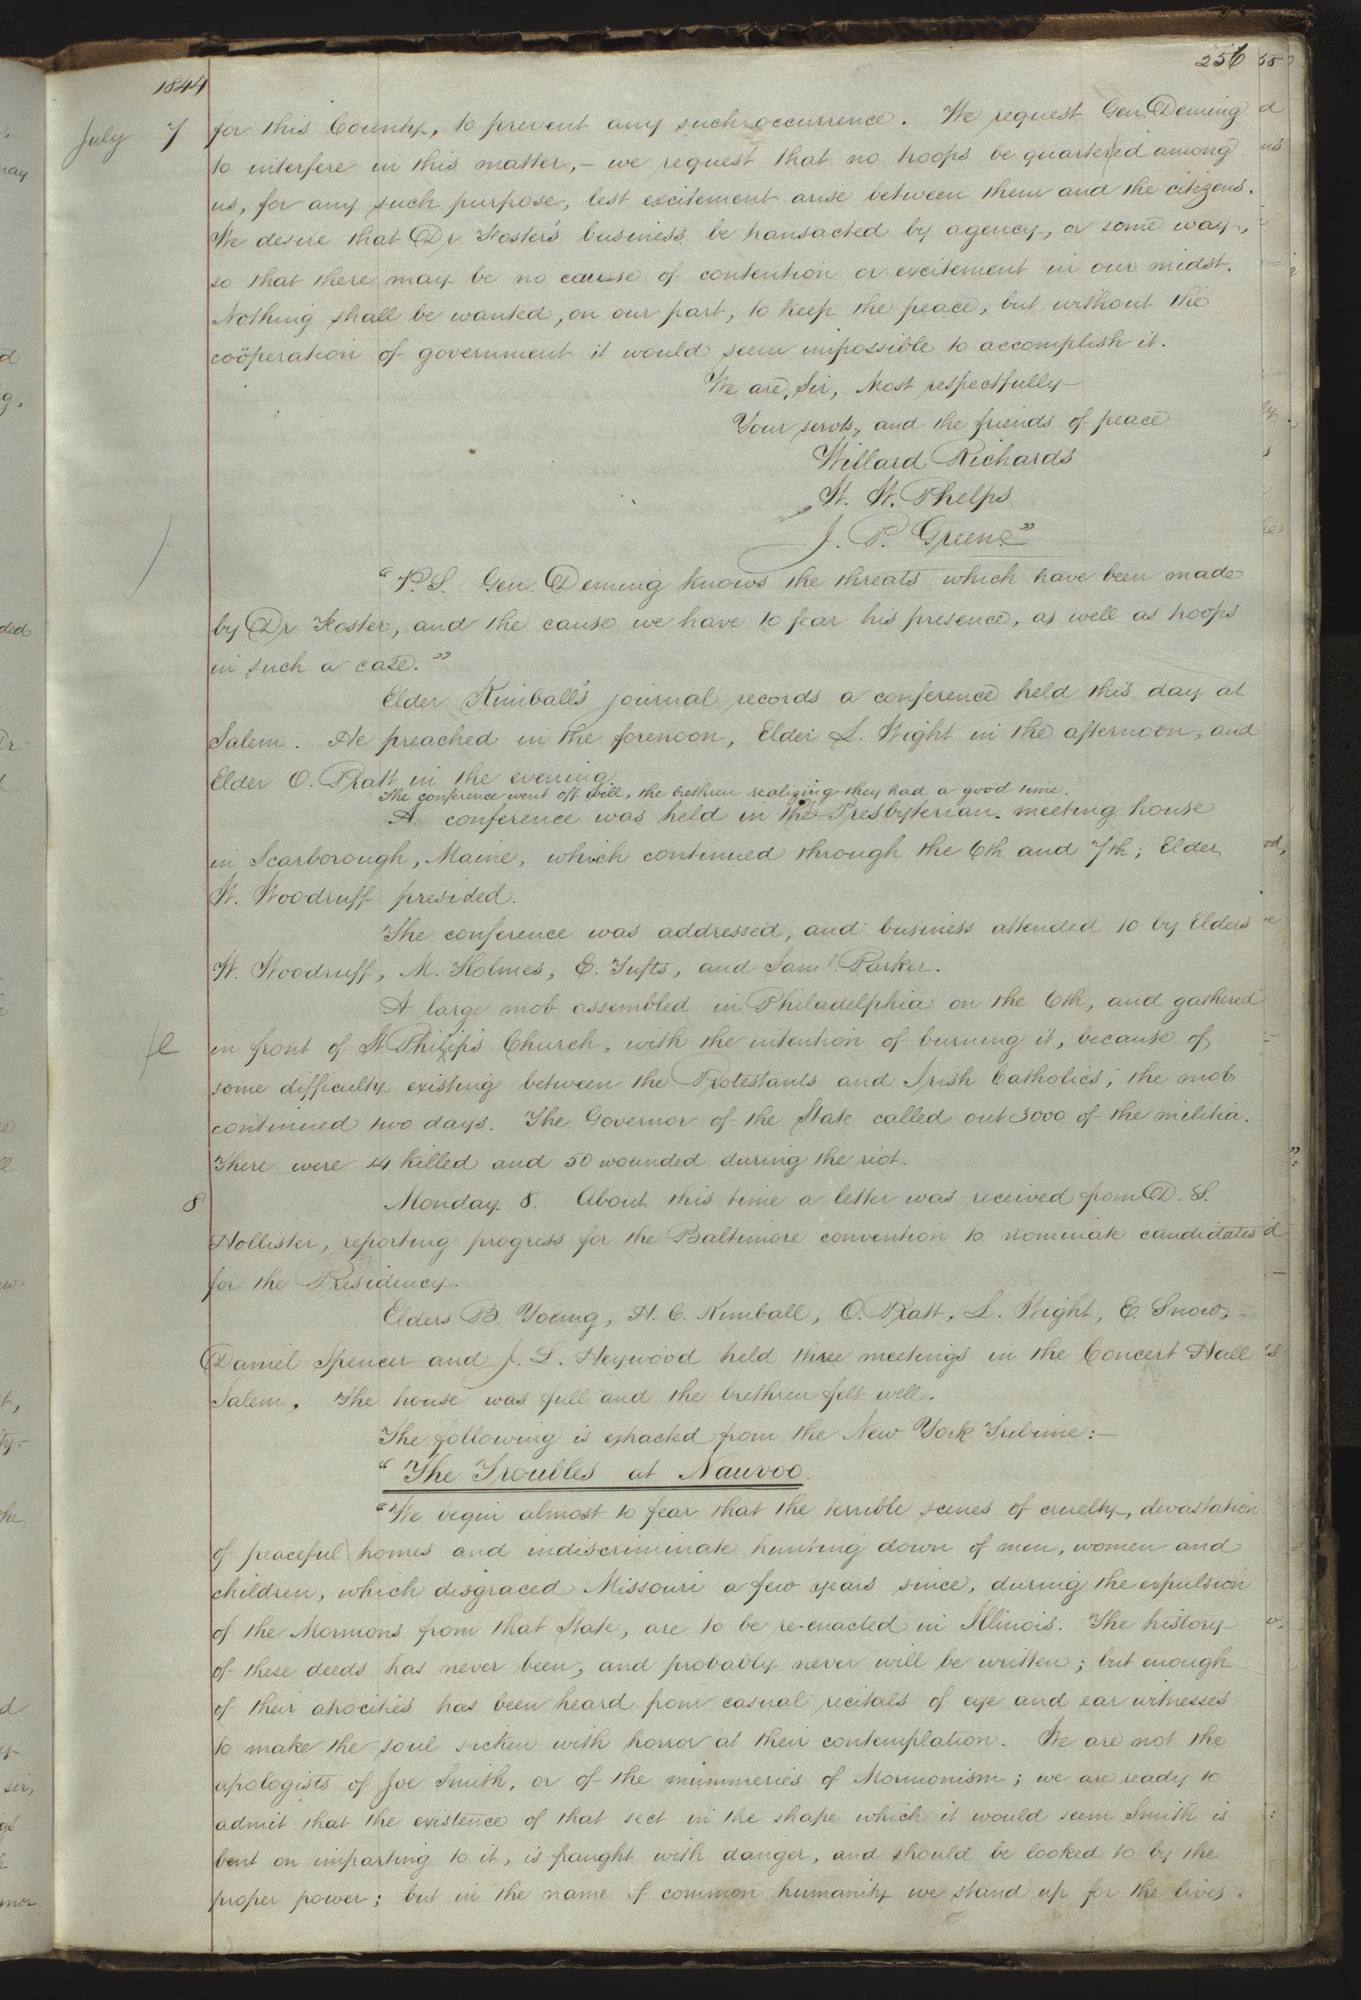 256
1844
July 7 for this County, to prevent any such occurrence. We request Gen. Deming
to interfere in this matter, – we request that no troops be quartered among
us, for any such purpose, lest excitement arise between them and the citizens.
We desire that Dr Foster's business be transacted by agency, or some way,
so that there may be no cause of contention or excitement in our midst.
Nothing shall be wanted, on our part, to keep the peace, but without the
coöperation of government it would seem impossible to accomplish it.
We are, Sir, Most respectfully
Your servts, and the friends of peace
Willard Richards
W. W. Phelps
J. P. Greene"
"P.S. Gen. Deming knows the threats which have been made
by Dr Foster, and the cause we have to fear his presence, as well as troops
in such a case."
Elder Kimball's journal records a conference held this day at
Salem. He preached in the forenoon, Elder L. Wight in the afternoon, and
Elder O. Pratt in the evening
The conference went off well, the brethren realizing they had a good time.
A conference was held in the Presbyterian meeting house
in Scarborough, Maine, which continued through the 6th and 7th; Elder
W. Woodruff presided.
The conference was addressed, and business attended to by Elders
W. Woodruff, M. Holmes, E. Tufts, and Saml. Parker.
A large mob assembled in Philadelphia on the 6th, and gathered
in front of St Philip's Church, with the intention of burning it, because of
some difficulty existing between the Protestants and Irish Catholics; the mob
continued two days. The Governor of the State called out 5000 of the militia.
There were 14 killed and 50 wounded during the riot.
8 Monday 8. About this time a letter was received from D. S.
Hollister, reporting progress for the Baltimore convention to nominate candidates
for the Presidency.
Elders B. Young, H. C. Kimball, O. Pratt, L. Wight, E. Snow,
Daniel Spencer and J. L. Heywood held three meetings in the Concert Hall
Salem. The house was full and the brethren felt well.
The following is extracted from the New York Tribune:–
"The Troubles at Nauvoo.
"We begin almost to fear that the terrible scenes of cruelty, devastation
of peaceful homes and indiscriminate hunting down of men, women and
children, which disgraced Missouri a few years since, during the expulsion
of the Mormons from that State, are to be re-enacted in Illinois. The history
of these deeds has never been, and probably never will be written; but enough
of their atrocities has been heard from casual recitals of eye and ear witnesses
to make the soul sicken with horror at their contemplation. We are not the
apologists of Joe Smith, or of the mummeries of Mormonism; we are ready to
admit that the existence of that sect in the shape which it would seem Smith is
bent on imparting to it, is fraught with danger, and should be looked to by the
proper power; but in the name of common humanity we stand up for the lives.